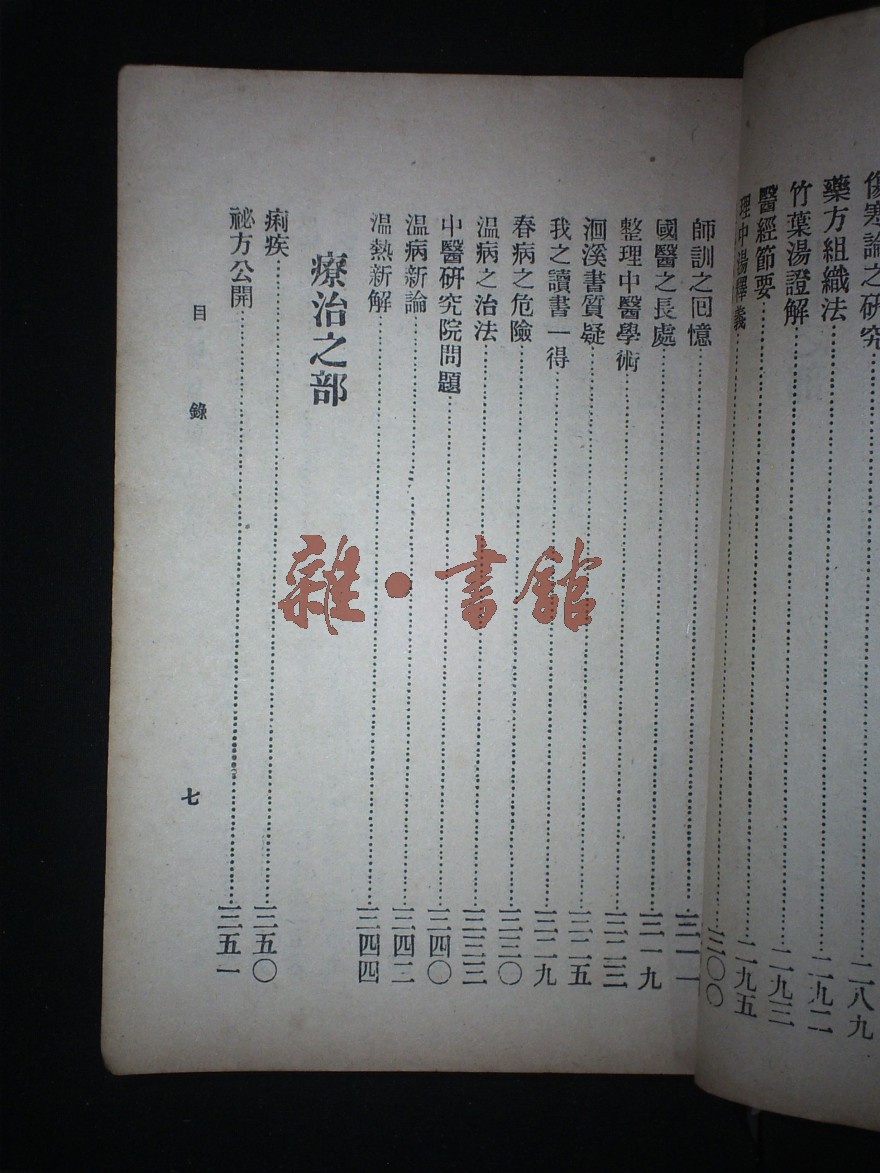 傷寒論之研究……二八九
藥方組織法……二九二
竹葉湯證解……二九三
醫經節要……二九五
理中湯釋義……三〇〇
師訓之回憶……三一一
國醫之長處……三一九
整理中醫學術……三二三
洄溪書質疑……三二五
我之讀書一得……三二九
春病之危險……三三〇
溫病之治法……三三三
中醫研究院問題……三四〇
溫病新論……三四二
溫熱新解……三四四
療治之部
痢疾……三五〇
祕方公開……三五一
目錄
七
雜·書館